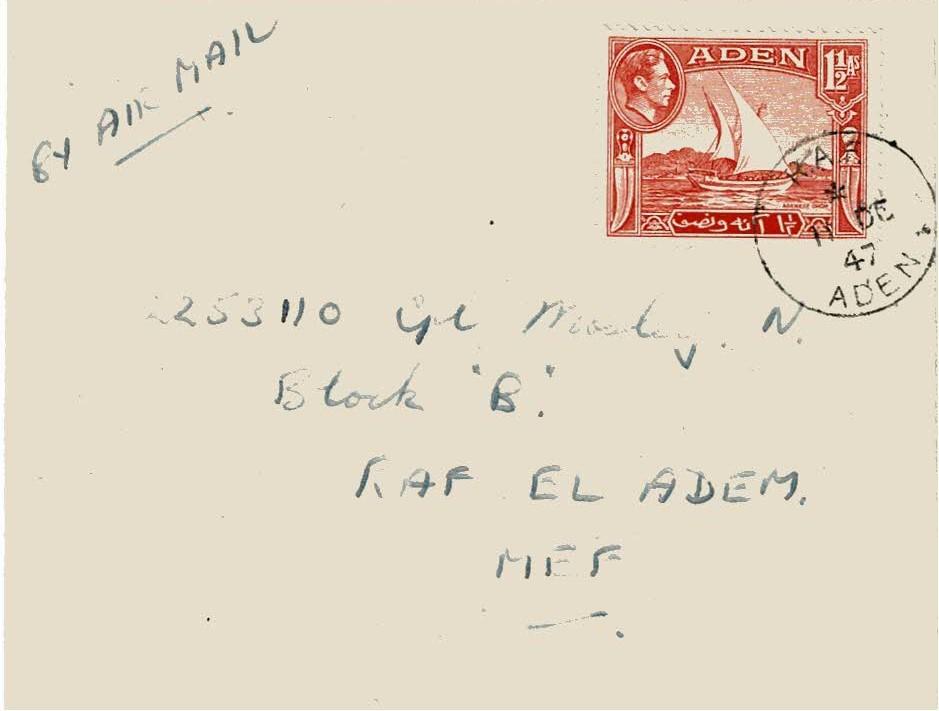 BY AIR MAIL
ADEN
1½ As
ADENESE DHOW
١½ آنه ونصف
11 DE
47
ADEN
2253110 Cpl N.
Block "B".
RAF EL ADEM.
MEF